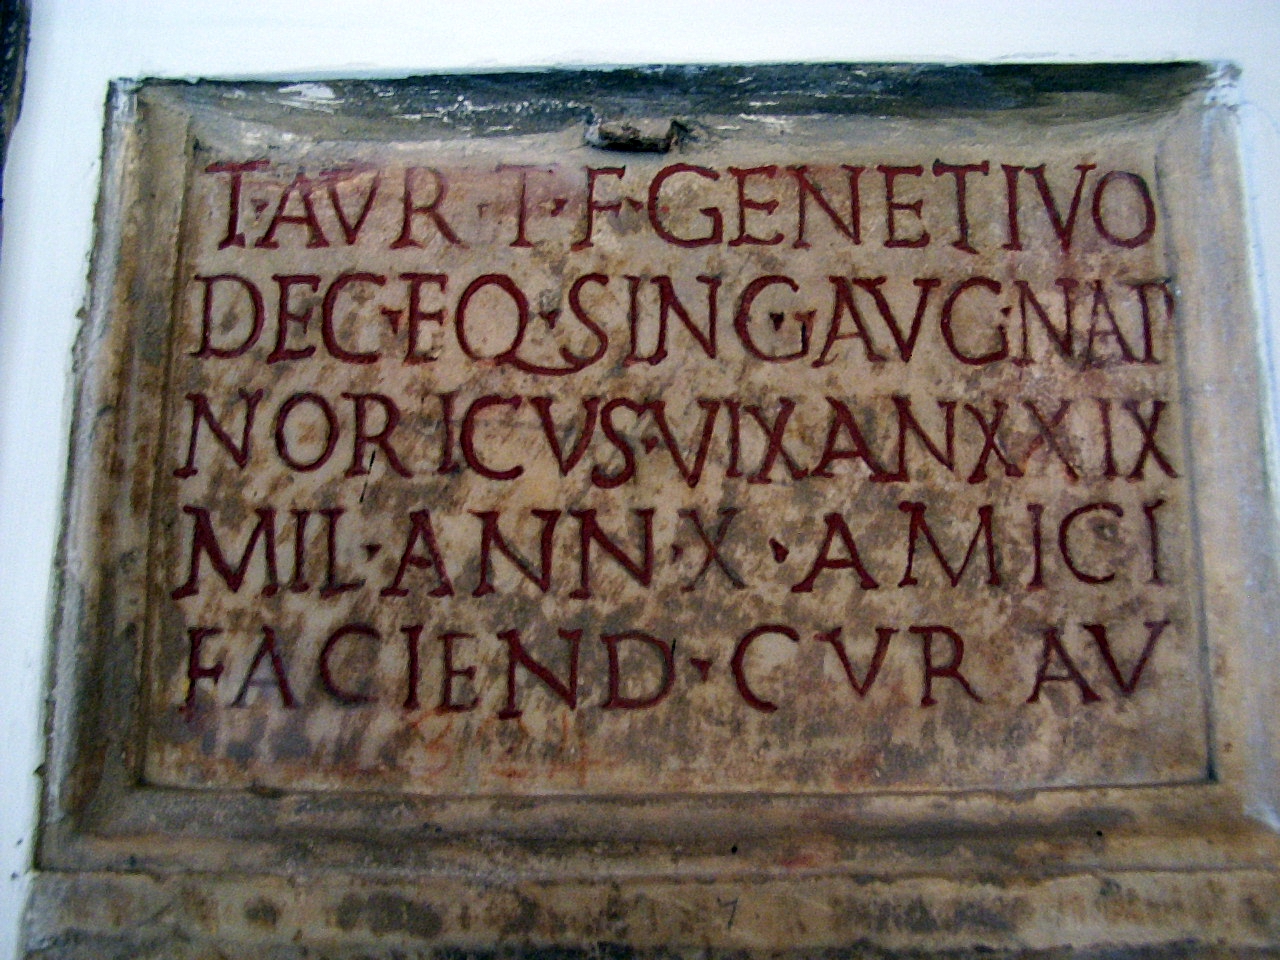 T·AVR·T·F·GENETIVO
DEC·EQ·SING·AVG·NAT
NORICVS·VIXANXXXIX
MIL·ANN·X·AMICI
FACIEND·CVRAV